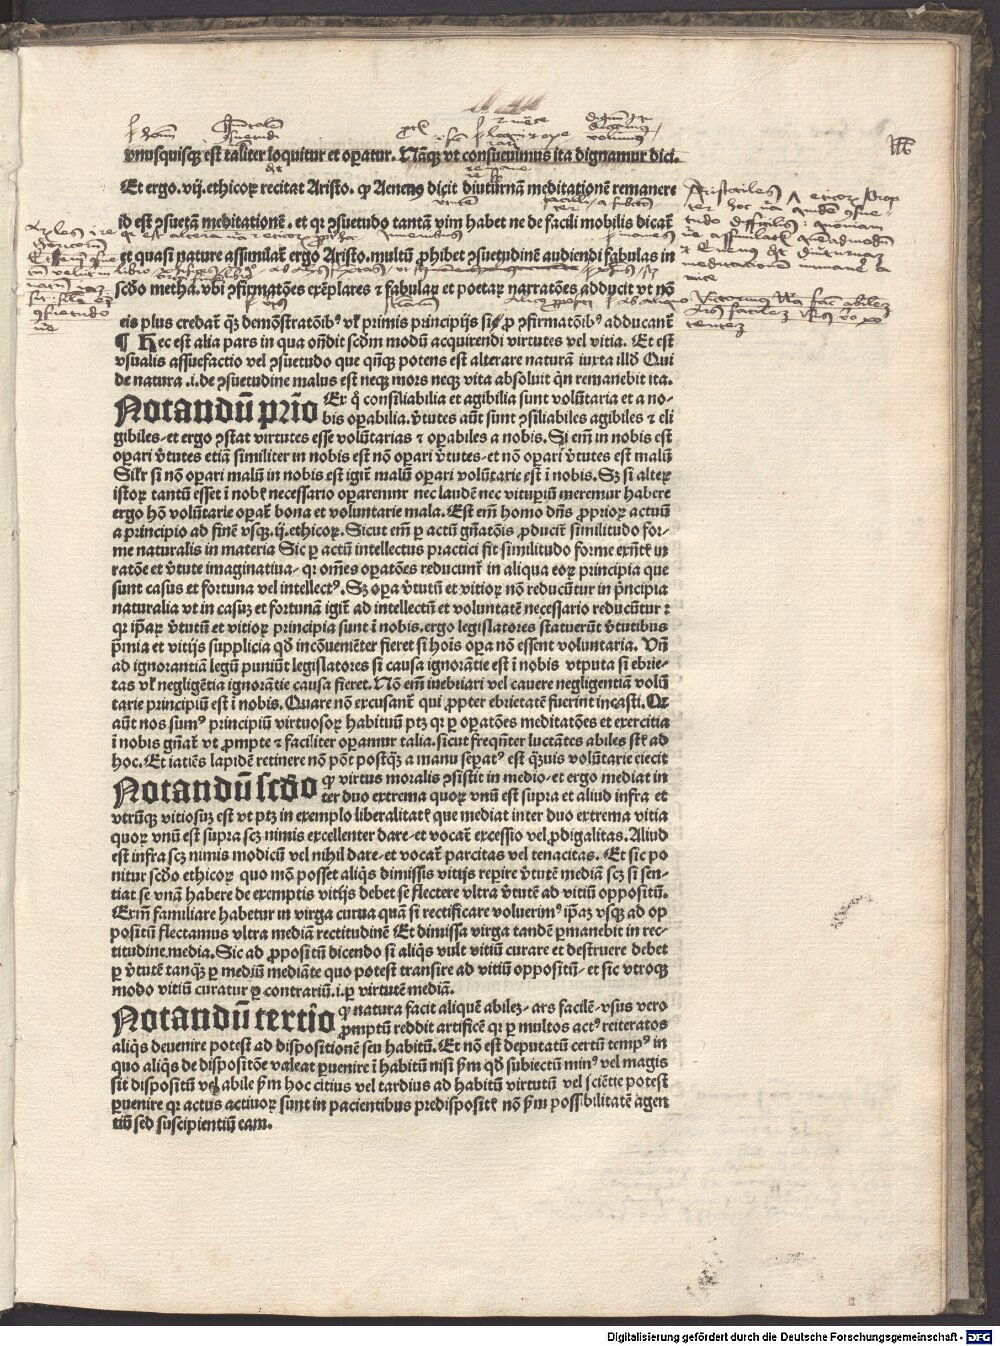 vnusquisq̃ est taliter loquitur et oꝑatur. Nãq̃ vt consueuimus ita dignamur dici.
Et ergo. vij. ethicoꝝ recitat Aristo. ꝙ Aenens dicit diuturnã meditationẽ remanere
id est ꝯsuetã meditationẽ. et qꝛ ꝯsuetudo tantã vim habet ne de facili mobilia dicat̃
et quasi nature assimilat̃ ergo Aristo. multũ ꝓhibet ꝯsuetudinẽ audiendi fabulas in
scðo metha. vbi ꝯfirmatões exẽplares ⁊ fabulaꝝ et poetaꝝ narratões adducit vt nõ
eis plus credat̃ q̃ꝫ demõstratõibꝰ vl̕ primis principijs siue ꝓ ꝯfirmatõibꝰ adducant̃
¶ Hec est alia pars in qua oñdit scðm modũ acquirendi virtutes vel vitia. Et est
vsualis assuefactio vel ꝯsuetudo que qñqꝫ potens est alterare naturã iuxta illð Qui
de natura .i. de ꝯsuetudine malus est neqꝫ mors neqꝫ vita absoluit q̃n remanebit ita.
Notandũ prĩo Ex q̊ consiliabilia et agibilia sunt volũtaria et a no-
bis oꝑabilia. v̓tutes aũt sunt ꝯsiliabiles agibiles ⁊ eli
gibiles- et ergo ꝯstat virtutes esse volũtarias ⁊ oꝑabiles a nobis. Si em̃ in nobis est
oꝑari v̓tutes etiã similiter in nobis est nõ oꝑari v̓tutes- et nõ oꝑari v̓tutes est malũ
Silr̃ si nõ oꝑari malũ in nobis est igit̃ malũ oꝑari volũtarie est ĩ nobis. Sꝫ si alteꝝ
istoꝝ tantũ esset ĩ nobꝭ necessario oꝑaremur nec laudẽ nec vituꝑiũ meremur habere
ergo hõ volũtarie oꝑat̃ bona et voluntarie mala. Est em̃ homo dñs ꝓprioꝝ actuũ
a principio ad finẽ vsqꝫ. ij. ethicoꝝ. Sicut em̃ ꝑ actũ gñatõis ꝓducit̃ similitudo for-
me naturalis in materia Sic ꝑ actũ intellectus practici fit similitudo forme exñtꝭ in
ratõe et v̓tute imaginatiua- qꝛ om̃es oꝑatões reducunt̃ in aliqua eoꝝ principia que
sunt casus et fortuna vel intellectꝰ. Sꝫ oꝑa v̓tutũ et vitioꝝ nõ reducũtur in pñcipia
naturalia vt in casuꝫ et fortunã igit̃ ad intellectũ et voluntatẽ necessario reducũtur ⁊
qꝛ ip̃aꝝ v̓tutũ et vitioꝝ principia sunt ĩ nobis. ergo legislatores statuerũt v̓tutibus
p̃mia et vitijs supplicia qð incõueniẽter fieret si hoĩs oꝑa nõ essent voluntaria. Vñ
ad ignorantiã legũ puniũt legislatores si causa ignorãtie est ĩ nobis vtputa si ebrie-
tas vl̕ negligẽtia ignorãtie causa fieret. Nõ em̃ inebriari vel cauere negligentiã volũ
tarie principiũ est ĩ nobis. Quare nõ excusant̃ qui ꝓpter ebrietatẽ fuerint incasti. Qꝛ
aũt nos sumꝰ principiũ virtuosoꝝ habituũ ptꝫ qꝛ ꝑ oꝑatões meditatões et exercitia
ĩ nobis gñat̃ vt ꝓmpte ⁊ faciliter oꝑamur talia. sicut freqñter luctãtes abiles st̃ꝭ ad
hoc. Et iaciẽs lapidẽ retinere nõ põt postq̃ꝫ a manu seꝑatꝰ est q̃ꝫuis volũtarie eiecit
Notandũ scðo ꝙ virtus moralis ꝯsistit in medio- et ergo mediat in
ter duo extrema quoꝝ vnũ est supra et aliud infra et
vtrũqꝫ vitiosuꝫ est vt ptꝫ in exemplo liberalitatꝭ que mediat inter duo extrema vitia
quoꝝ vnũ est supra scꝫ nimis excellenter dare- et vocat̃ excessio vel ꝓdigalitas. Aliud
est infra scꝫ nimis modicũ vel nihil dare- et vocat̃ parcitas vel tenacitas. Et sic po
nitur scðo ethicoꝝ quo mõ posset aliq̃s dimissis vitijs reꝑire v̓tutẽ mediã scꝫ si sen-
tiat se vnã habere de exemptis vitijs debet se flectere vltra v̓tutẽ ad vitiũ oppositũ.
Exm̃ familiare habetur in virga curua quã si rectificare voluerimꝰ ip̃aꝫ vsqꝫ ad op
positũ flectamus vltra mediã rectitudinẽ Et dimissa virga tandẽ ꝑmanebit in rec-
titudine media. Sic ad ꝓpositũ dicendo si aliq̃s vult vitiũ curare et destruere debet
ꝑ v̓tutẽ tanq̃ꝫ ꝑ mediũ mediãte quo potest transire ad vitiũ oppositũ- et sic vtroqꝫ
modo vitiũ curatur ꝑ contrariũ. i. ꝑ virtutẽ mediã.
Notandũ tertio ꝙ natura facit aliquẽ abileꝫ- ars facilẽ- vsus vero
ꝓmptũ reddit artificẽ qꝛ ꝑ multos actꝰ reiteratos
aliq̃s deuenire potest ad dispositionẽ seu habitũ. Et nõ est deputatũ certũ tempꝰ in
quo aliq̃s de dispositõe valeat ꝑuenire ĩ habitũ nisi ẜm qð subiectũ minꝰ vel magis
sit dispositũ vel abile ẜm hoc citius vel tardius ad habitũ virtutũ vel sciẽtie potest
ꝑuenire qꝛ actus actiuoꝝ sunt in pacientibus predispositꝭ nõ ẜm possibilitatẽ agen
tiũ sed suscipientiũ eam.
Digitalisierung gefördert durch die Deutsche Forschungsgemeinschaft - DFG